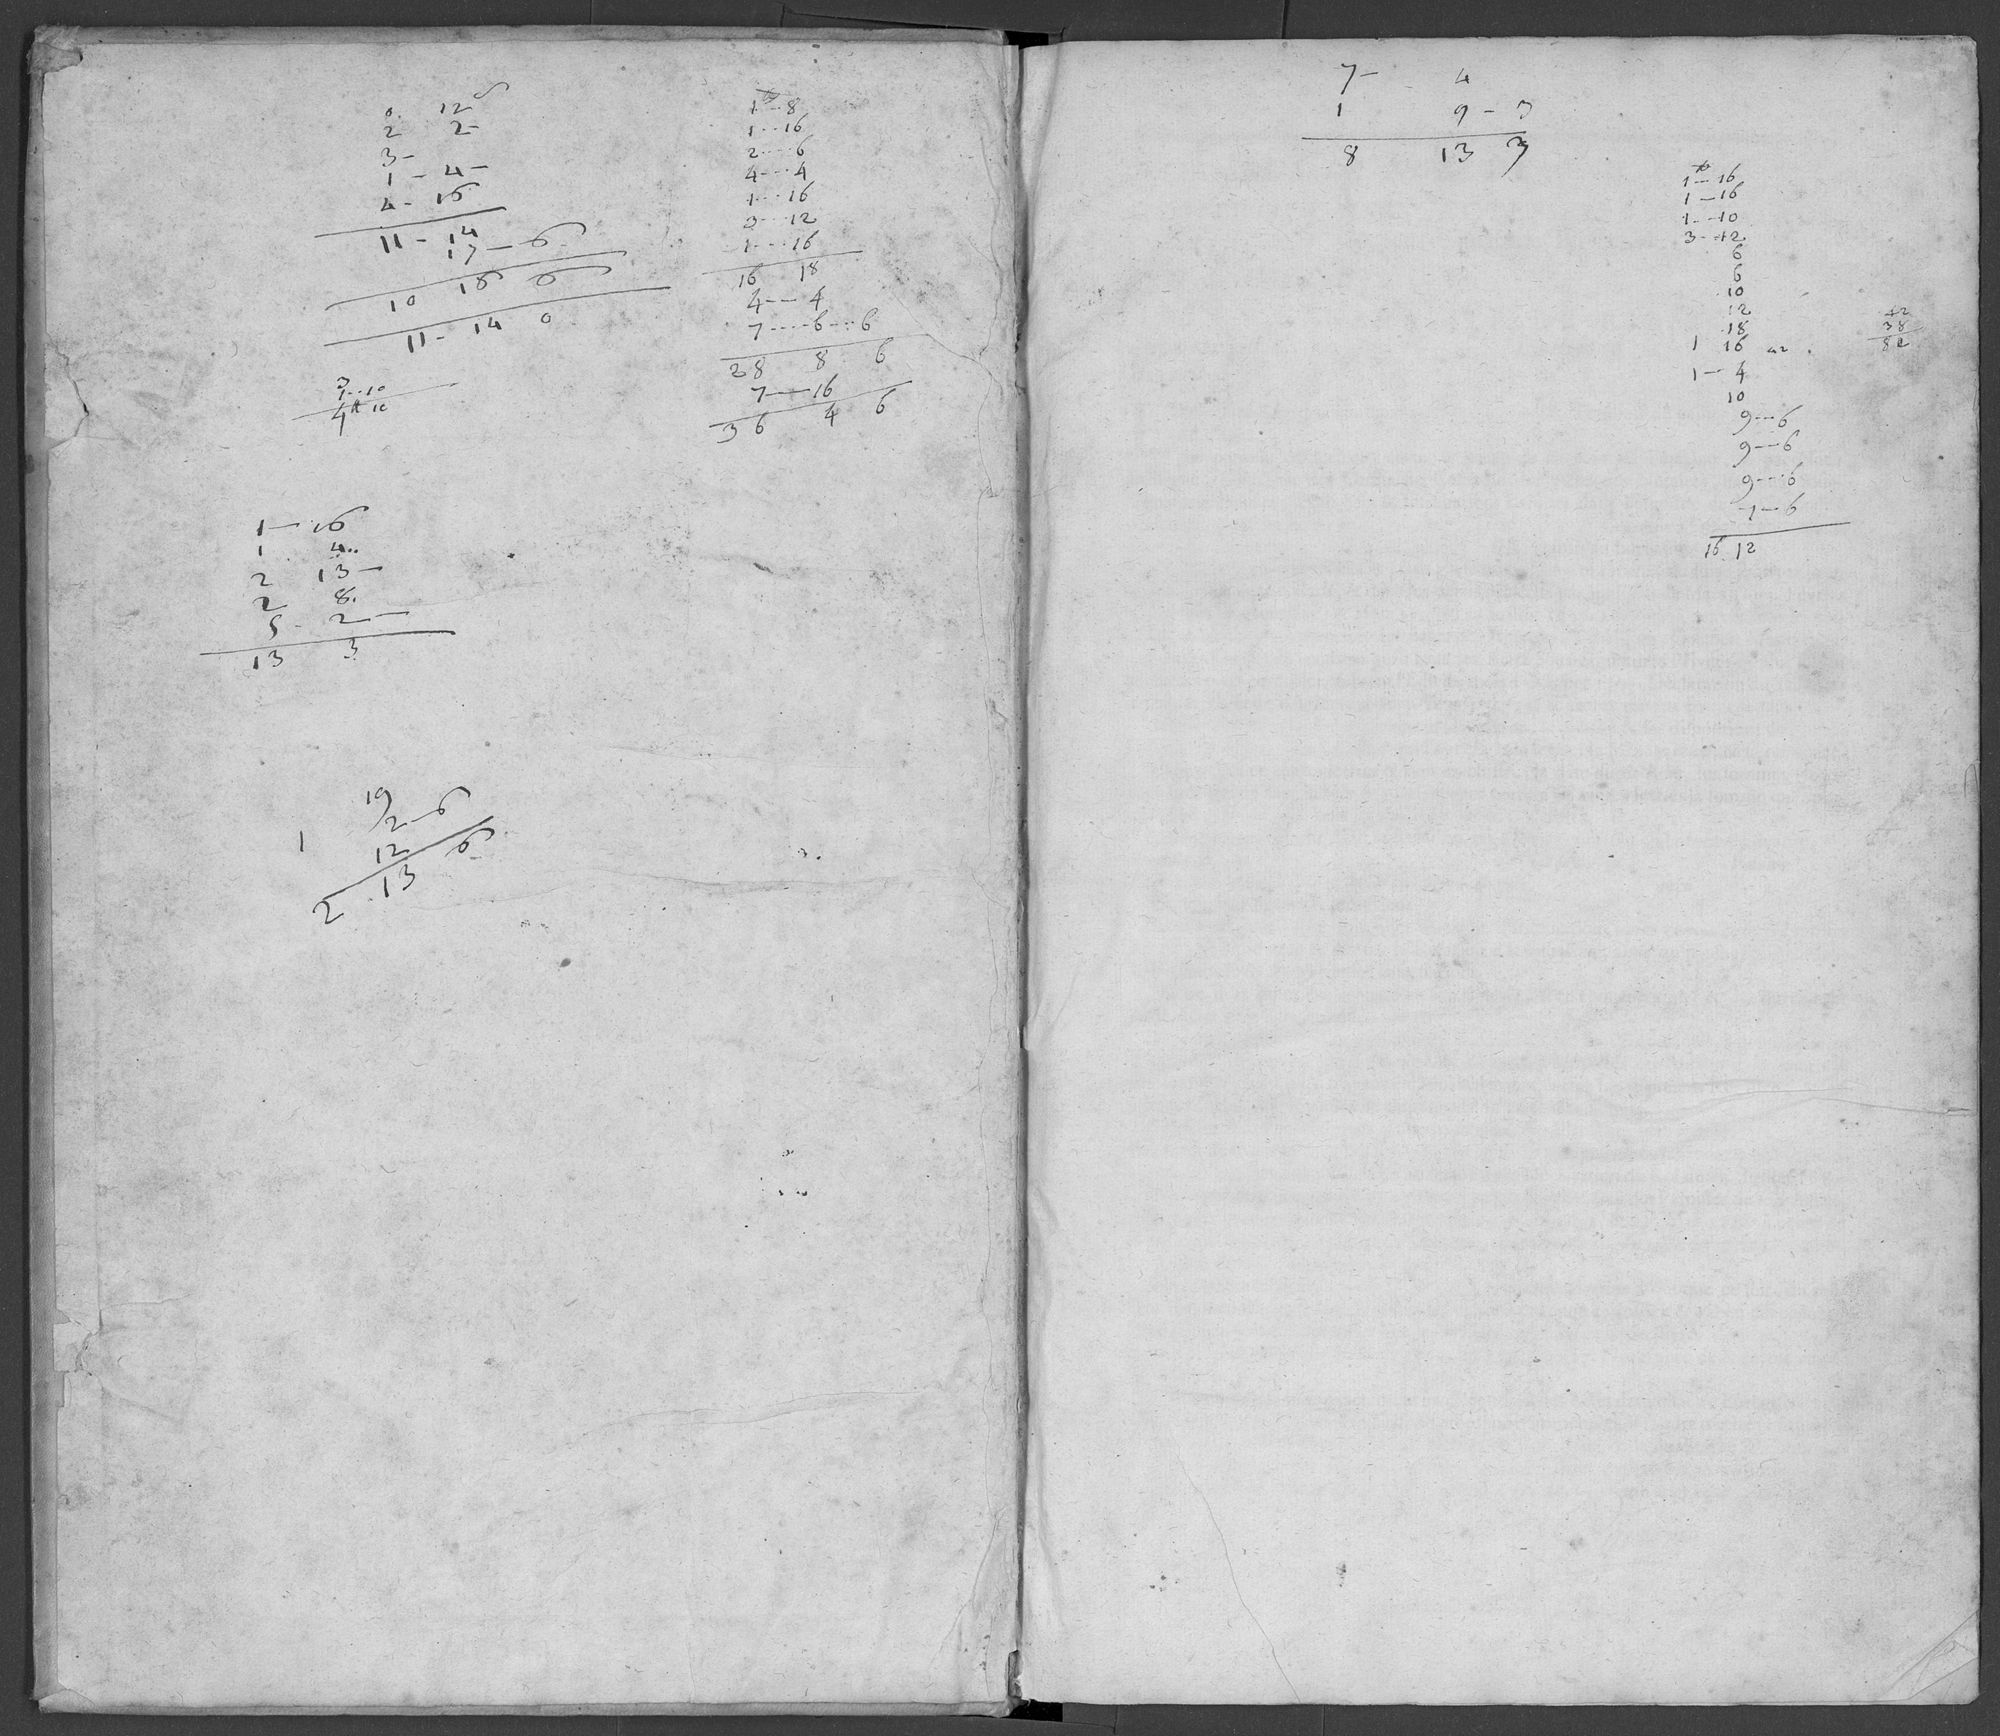 0. 12
2 2-
3-
1 - 4 -
4 - 16
11 - 14
17 - 6
10 16 6
11 - 14 0
3
1...10
4 10
1...8
1...16
2....6
4...4
1...16
3...12
1...16
16 18
4--4
7....6...6
28 8 6
7---16
36 4 6
1 - 16
1 4..
2 13 -
2 8.
5 - 2 -
13 3
19
2-6
1 12 6
2 13
7- 4
1 9 - 3
8 13 3
1--16
1--16
1--10
3--12
6
6
10
12
18
1 16 42
1-- 4
10
9---6
9---6
9---6
-1--6
16 12
42
38
82